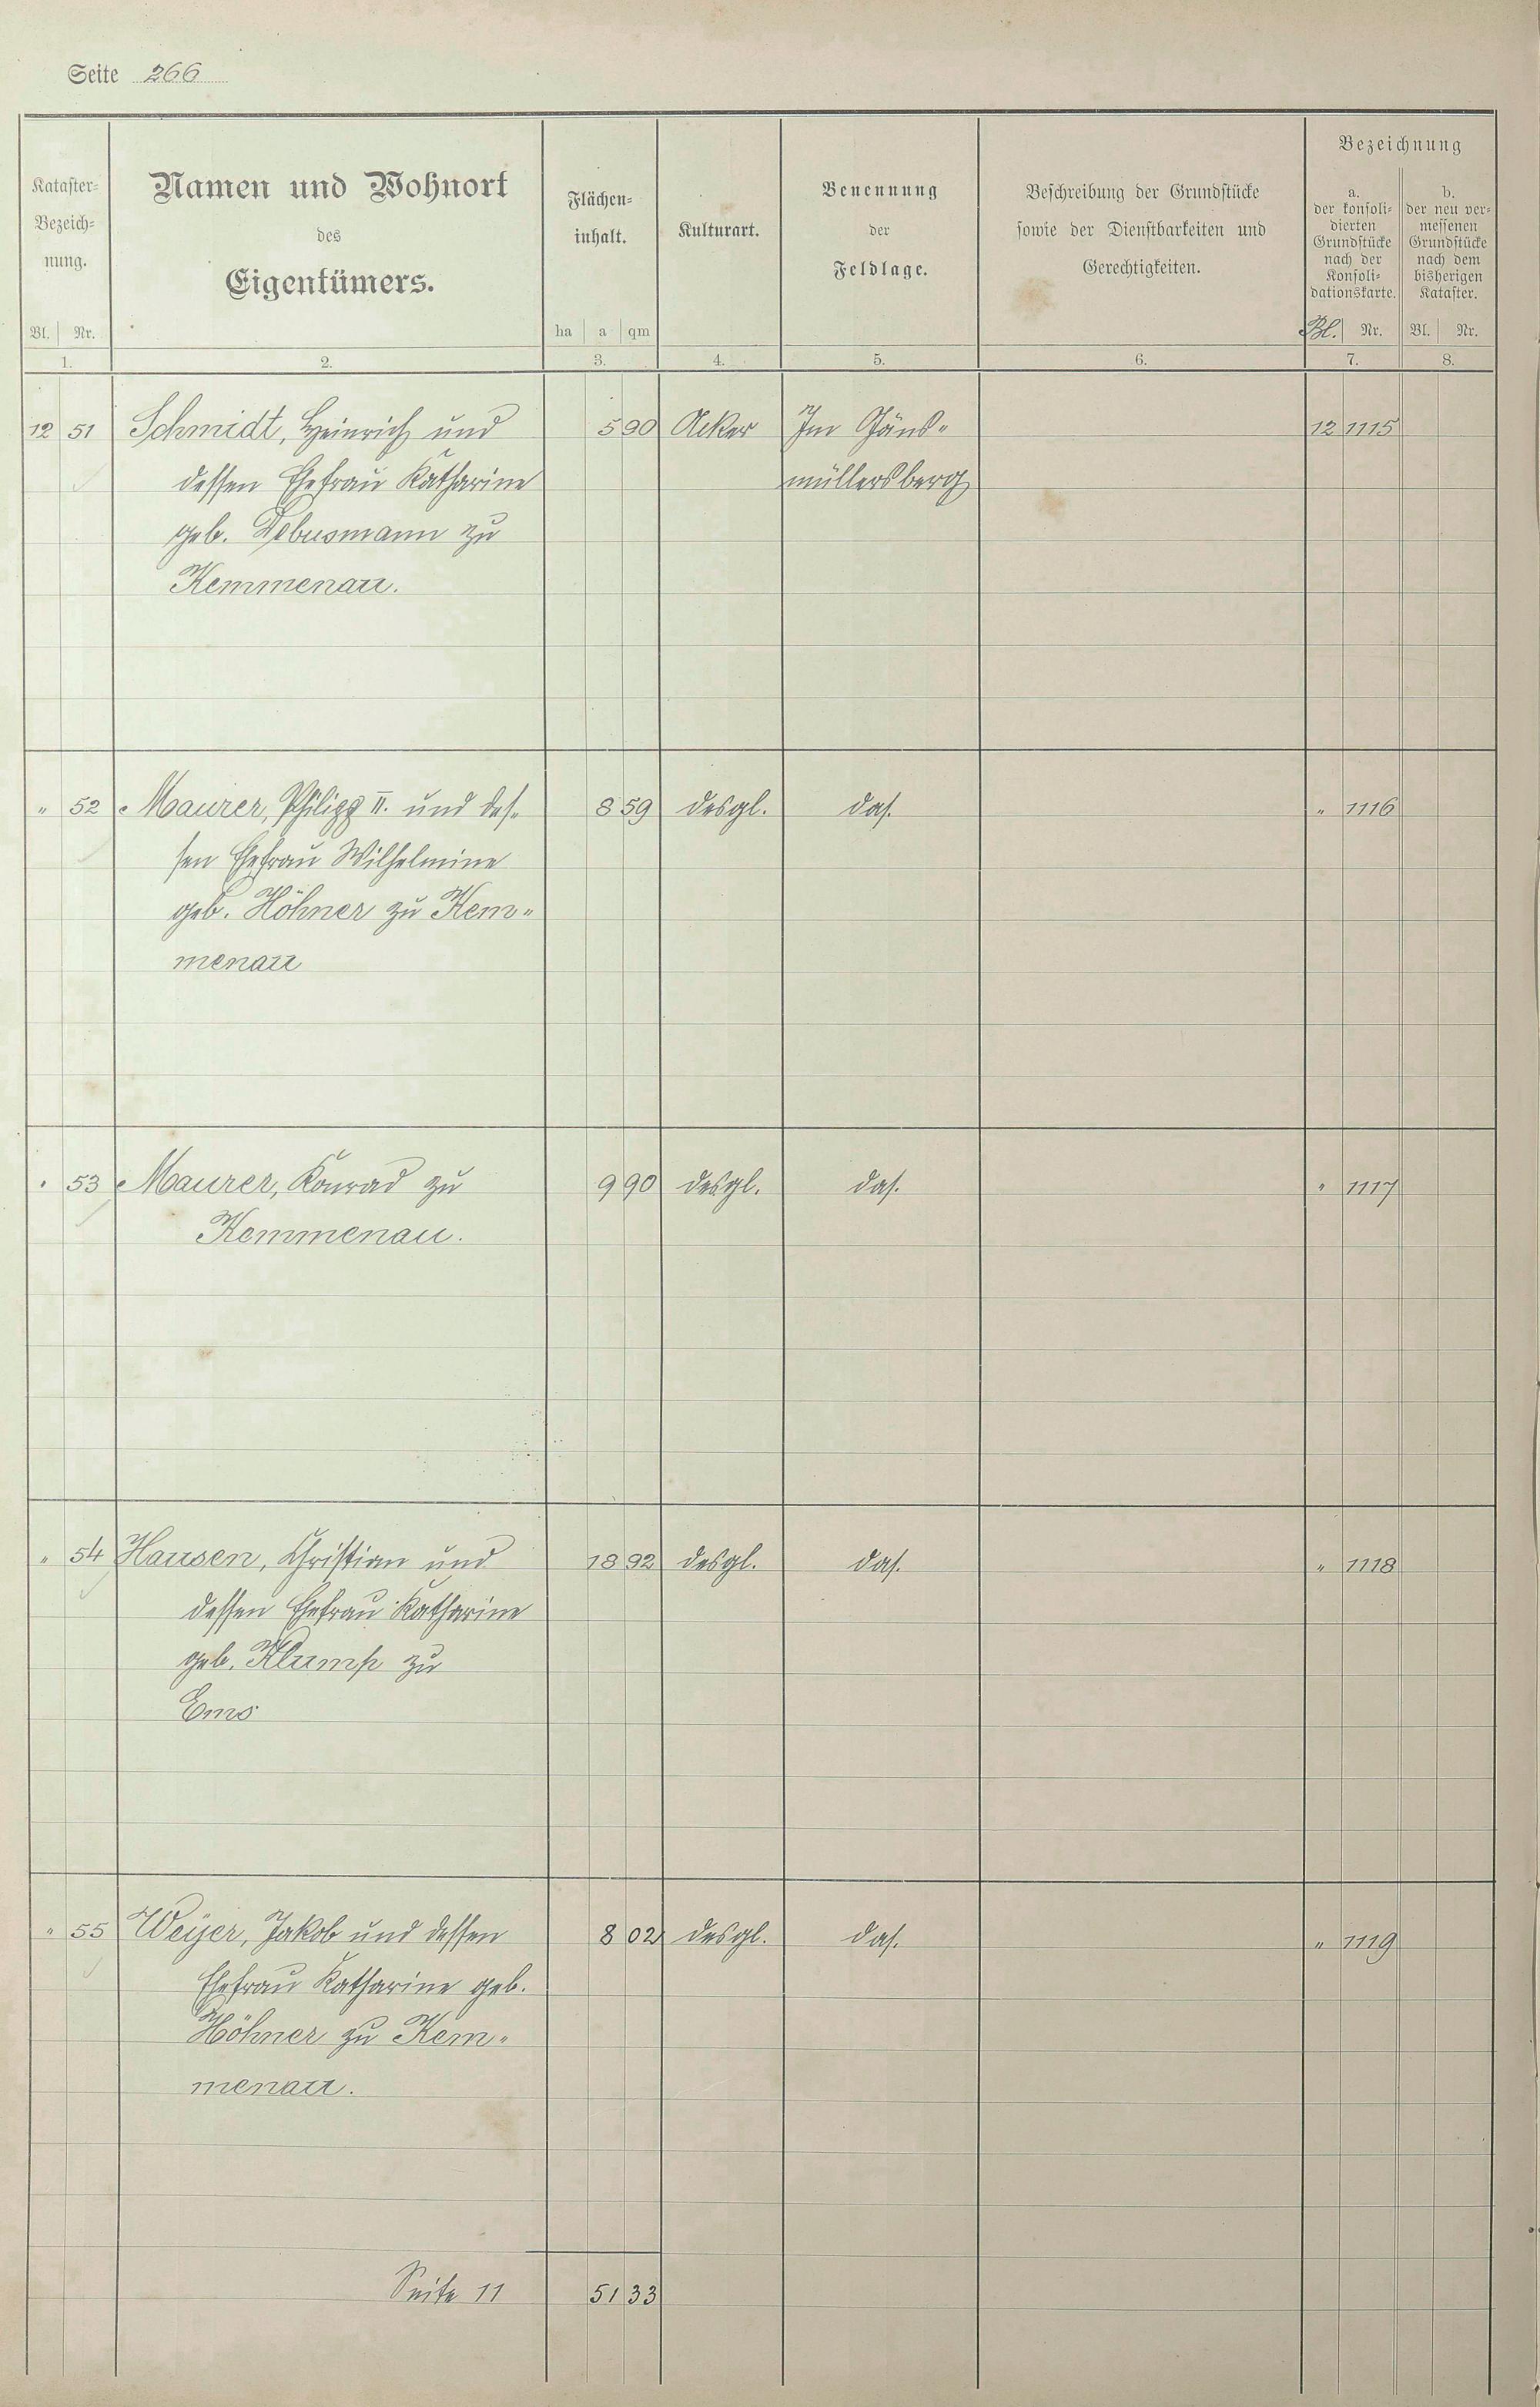 Seite 266
Kataster-
Bezeich-
nung.
Bl. Nr.
1.
Namen und Wohnort
des
Eigentümers.
2.
Flächen-
inhalt.
ha a qm
3.
Kulturart.
4.
Benennung
der
Feldlage.
5.
Beschreibung der Grundstücke
sowie der Dienstbarkeiten und
Gerechtigkeiten.
6.
Bezeichnung
a.
der konsoli-
dierten
Grundstücke
nach der
Konsoli-
dationskarte.
Bl. Nr.
7.
b.
der neu ver-
messenen
Grundstücke
nach dem
bisherigen
Kataster.
Bl. Nr.
8.
12 51 Schmidt, Heinrich und 5 90 Acker Im Gäns- 12 1115
dessen Ehefrau Katharine müllersberg
geb. Debusmann zu
Kemmenau.
" 52 Maurer, Philipp II. und des- 8 59 desgl. das. " 1116
sen Ehefrau Wilhelmine
geb. Höhner zu Kem-
menau
" 53 Maurer, Konrad zu 9 90 desgl. das. " 1117
Kemmenau.
" 54 Hausen, Christian und 18 92 desgl. das. " 1118
dessen Ehefrau Katharine
geb. Klump zu
Ems
" 55 Weyer, Jakob und dessen 8 02 desgl. das. " 1119
Ehefrau Katharine geb.
Höhner zu Kem-
menau.
Seite 11 51 33